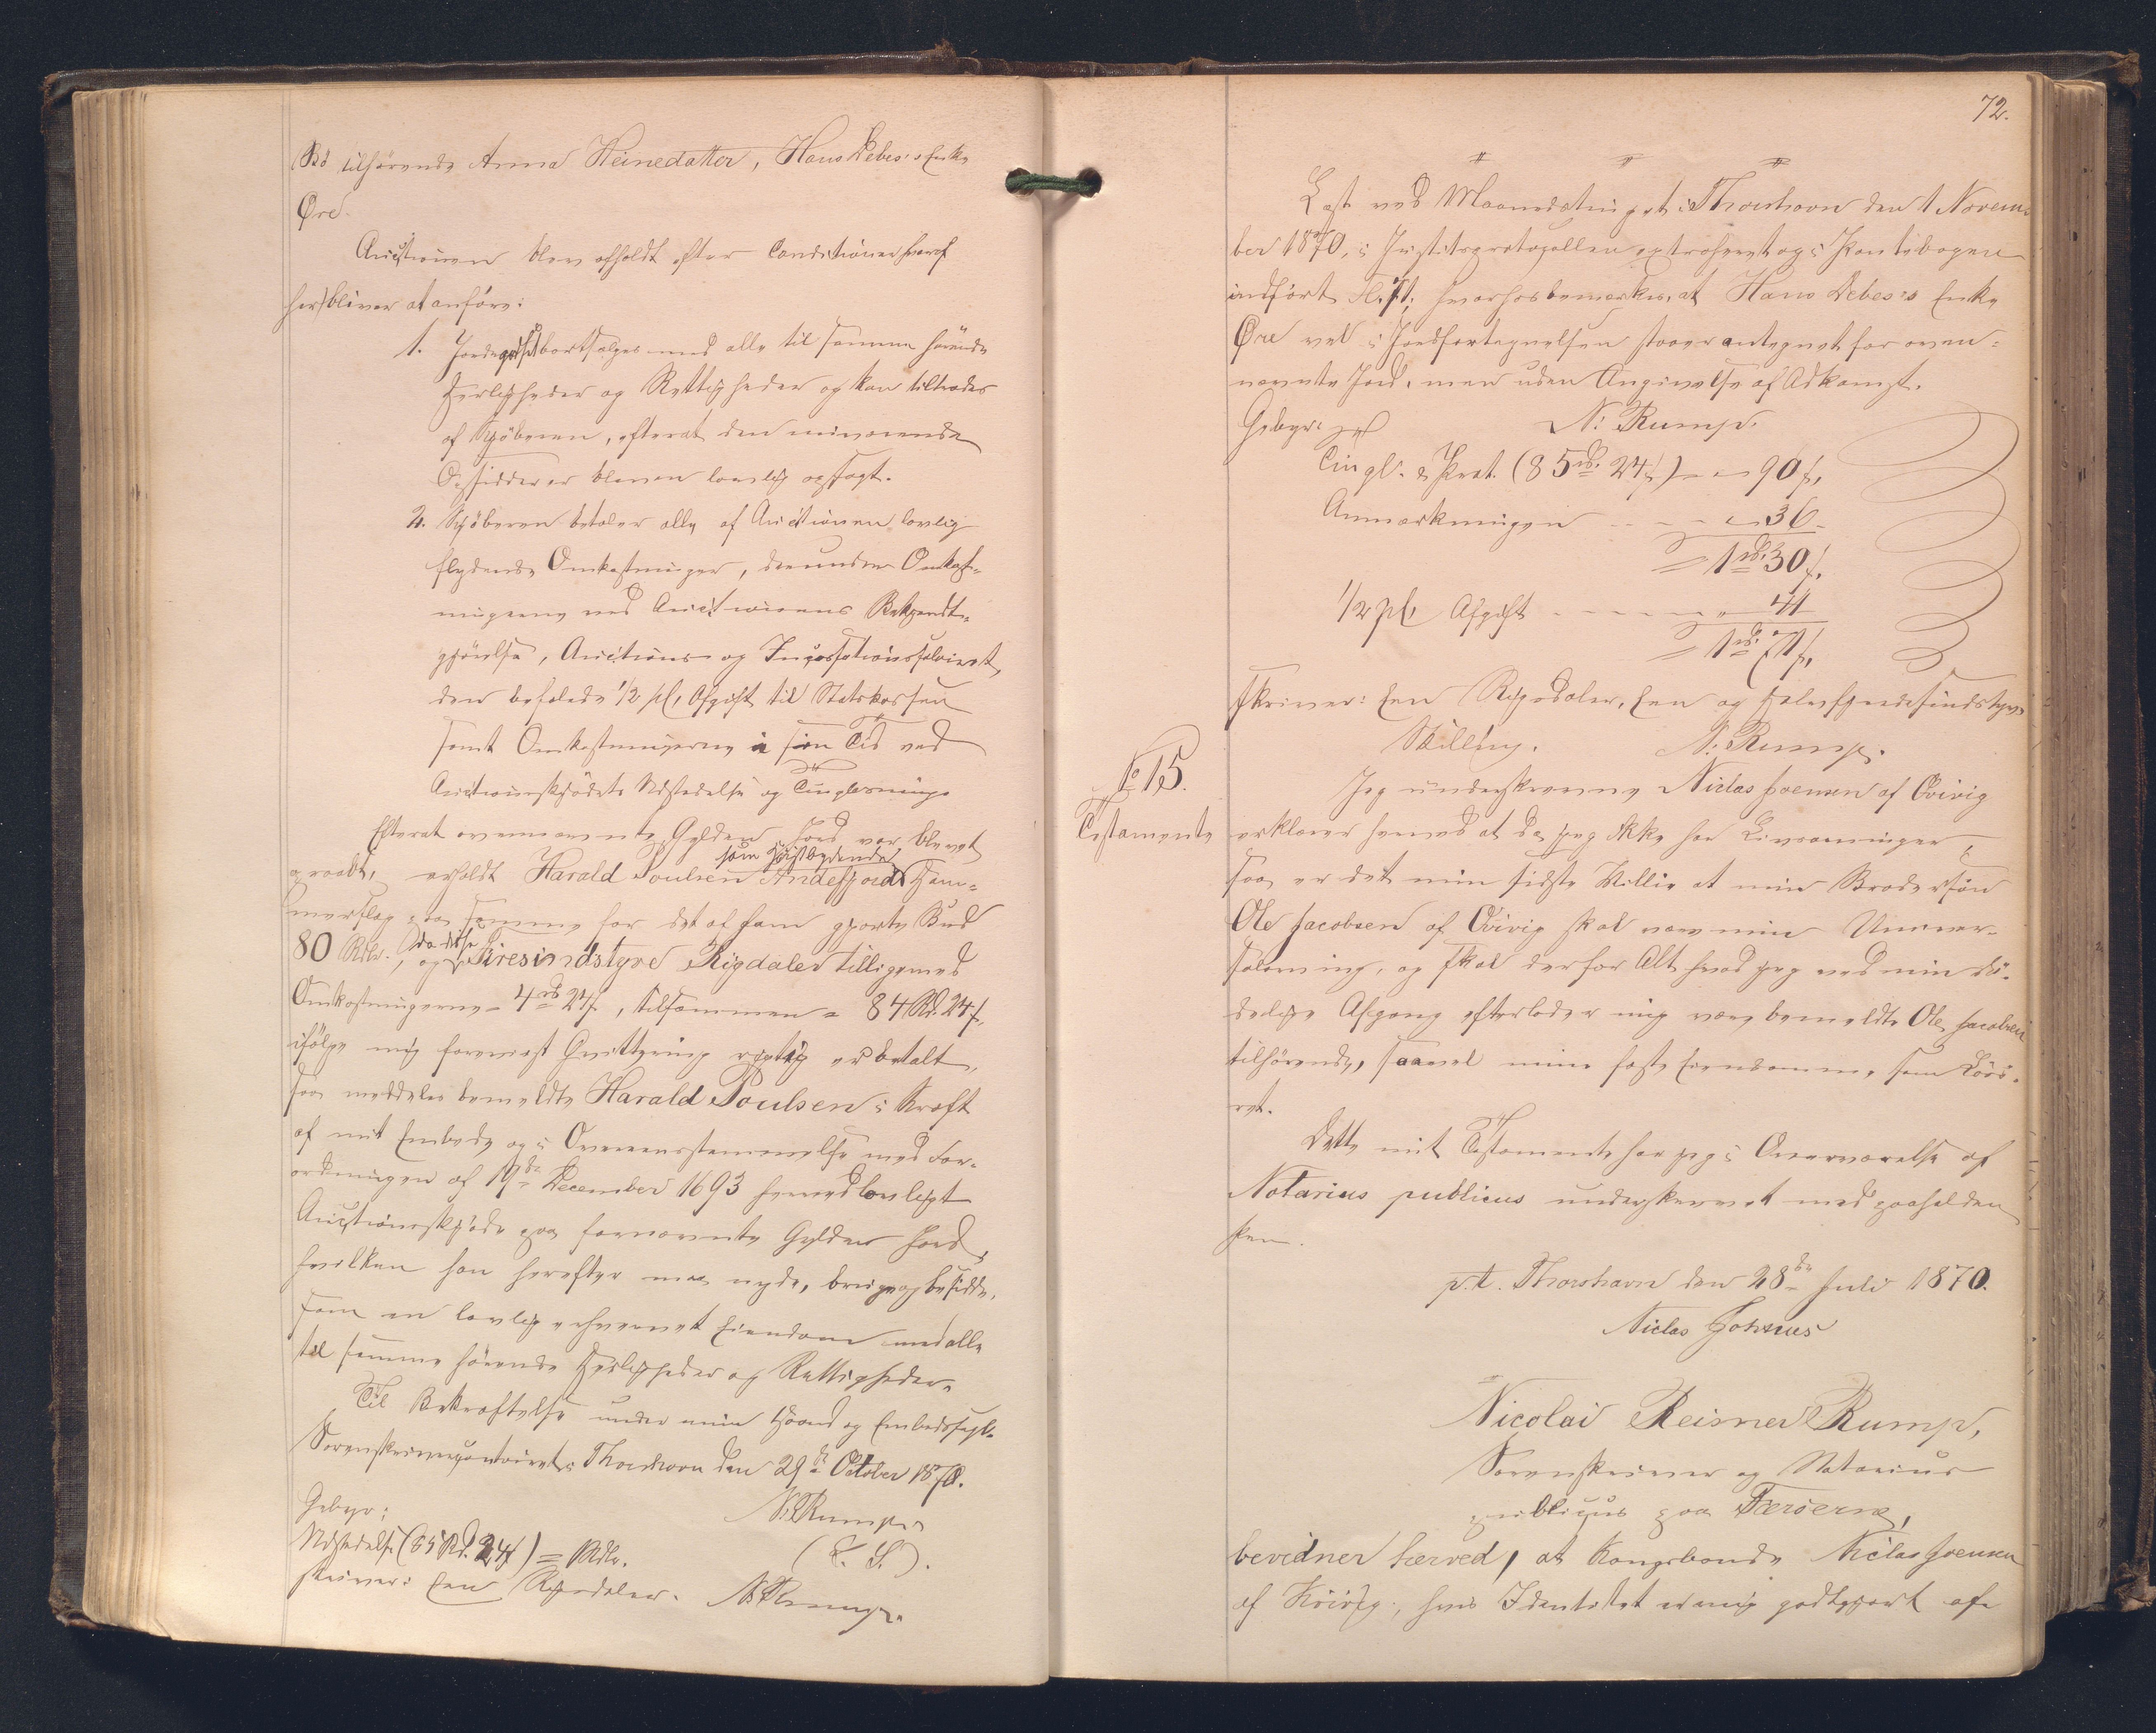 Bö tilhørende Anna Heinedatter, Hans Debes's Enke
Øre.
Auctionen blev afholdt efter Conditioner hvoraf
her bliver at anføre:
1. Jordegodset bortsælges med alle til samme hörende
Herligheder og Rettigheder og kan tiltrædes
af Kjöberen, efterat den nuværende
Opsidder er bleven lovlig opsagt.
2. Kjöberen betaler alle af Auctionen lovlig
flydende Omkostninger, derunder Omkost-
ningerne ved Auctionens Bekjendt-
gjörelse, Auctions- og Incassationssalariet,
den befalede 1/2 pCt. Afgift til Statskassen
samt Omkostningerne i sin Tid ved
Auctionsskjödets Udstedelse og Tinglæsning.
Efterat ovennævnte Gylden Jord var blevet
opraabt, erholdt Harald Poulsen Andefjord som Höistbydende Ham-
merslag paa samme for det af ham gjorte Bud
80 Rdlr., og da disse Firesindstyve Rigdaler tilligemed
Omkostningerne 4 rd 24 s, tilsammen = 84 Rd. 24 s,
ifölge mig forevist Qvittering rigtig er betalt,
saa meddeles bemeldte Harald Poulsen i Kraft
af mit Embede og i Overensstemmelse med For-
ordningen af 19de December 1693 herved lovligt
Auctionsskjöde paa fornævnte Gylden Jord,
hvilken han herefter maa nyde, bruge og besidde,
som en lovlig erhvervet Eiendom med alle
til samme hörende Herligheder og Rettigheder.
Til Bekræftelse under min Haand og Embedssegl.
Sorenskrivercontoiret i Thorshavn den 29de October 1870.
Gebyr:
N. Rump.
Udstedelse (85 Rd. 24 s) = 1 Rdlr.
(L. S.).
skriver: Een Rigsdaler. N. Rump.
72.
Læst ved Maanedstinget i Thorshavn den 1 Novem-
ber 1870, i Justitsprotocollen extraheret og i Pantebogen
indfört Fl. 71, hvorhos bemærkes, at Hans Debes's Enke
Øre vel i Jordfortegnelsen staaer antegnet for oven-
nævnte Jord, men uden Angivelse af Adkomst.
Gebyr:
N. Rump.
Tingl. & Prot. (85 rd. 24 s) - - 90 s,
Anmærkningen - - - - 36 -
= 1 rd. 30 s.
1/2 pCt. Afgift - - - - - 41
= 1 rd. 71 s,
skriver: Een Rigsdaler, Een og Halvfjerdesindstyve
Skilling. N. Rump.
No 15.
Testamente
Jeg underskrevne Niclas Joensen af Qvivig
erklærer herved at da jeg ikke har Livsarvinger,
saa er det min sidste Villie at min Brodersön
Ole Jacobsen af Qvivig skal være min Univer-
salarving, og skal derfor Alt hvad jeg ved min dö-
delige Afgang efterlader mig være bemeldte Ole Jacobsen
tilhörende, saavel mine faste Eiendomme, som Lös-
öret.
Dette mit Testamente har jeg i Overværelse af
Notarius publicus underskrevet med paaholden
Pen.
p.t. Thorshavn den 28de Juli 1870.
Niclas Johnnes
Nicolai Reisner Rump,
Sorenskriver og Notarius
publicus paa Færöerne,
bevidner herved, at Kongsbonde Niclas Joensen
af Kvivig, hvis Identitet er mig godtgjort af